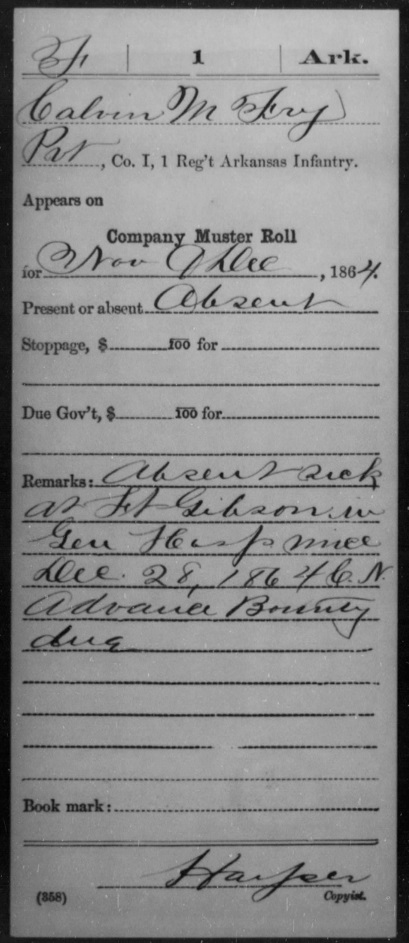 F | 1 | Ark.
Calvin M Fry
Pvt, Co. I, 1 Reg't Arkansas Infantry.
Appears on
Company Muster Roll
for Nov & Dec, 1864.
Present or absent Absent
Stoppage, $ 100 for
Due Gov't, $ 100 for
Remarks: Absent sick
at Ft Gibson in
Gen Hosp since
Dec. 28, 1864 C. N.
Advance Bounty
due
Book mark:
Harper
(358) Copyist.